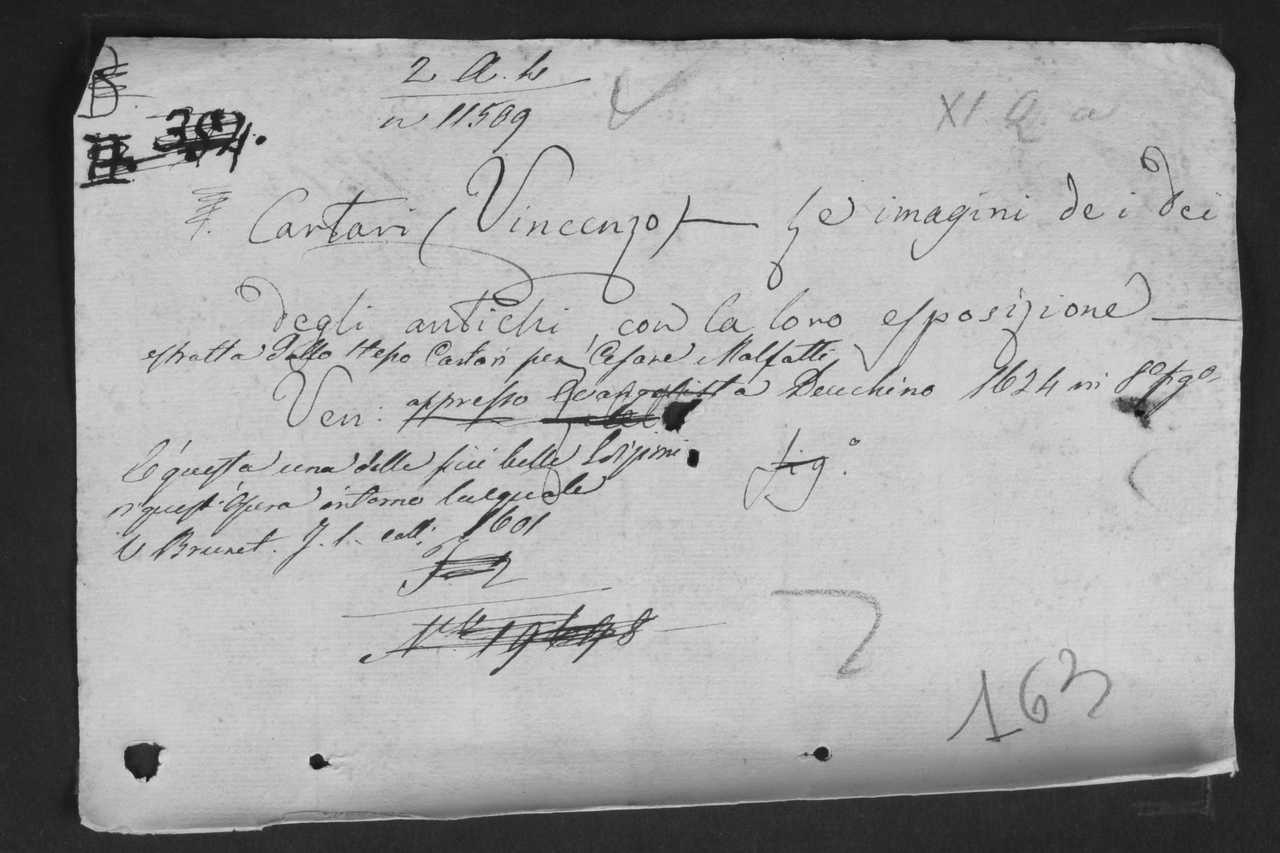 2 A. h
n 11509
XI Q. a
Cartari (Vincenzo) — Le imagini de i dei
degli antichi, con la loro esposizione —
estratta dallo stesso Cartari per Cesare Malfatti
Ven: appresso Evangelista Deuchino 1624 in 8° fig°
È questa una delle più belle Edizioni
di quest'Opera intorno la quale
V Brunet. I. l. coll. 1601
fig.°
163